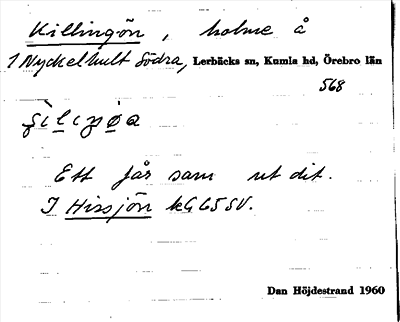 Killingön, holme å
1 Nyckelhult Södra, Lerbäcks sn, Kumla hd, Örebro län
568
Ett får sam ut dit.
I Hissjön kG65SV.
Dan Höjdestrand 1960